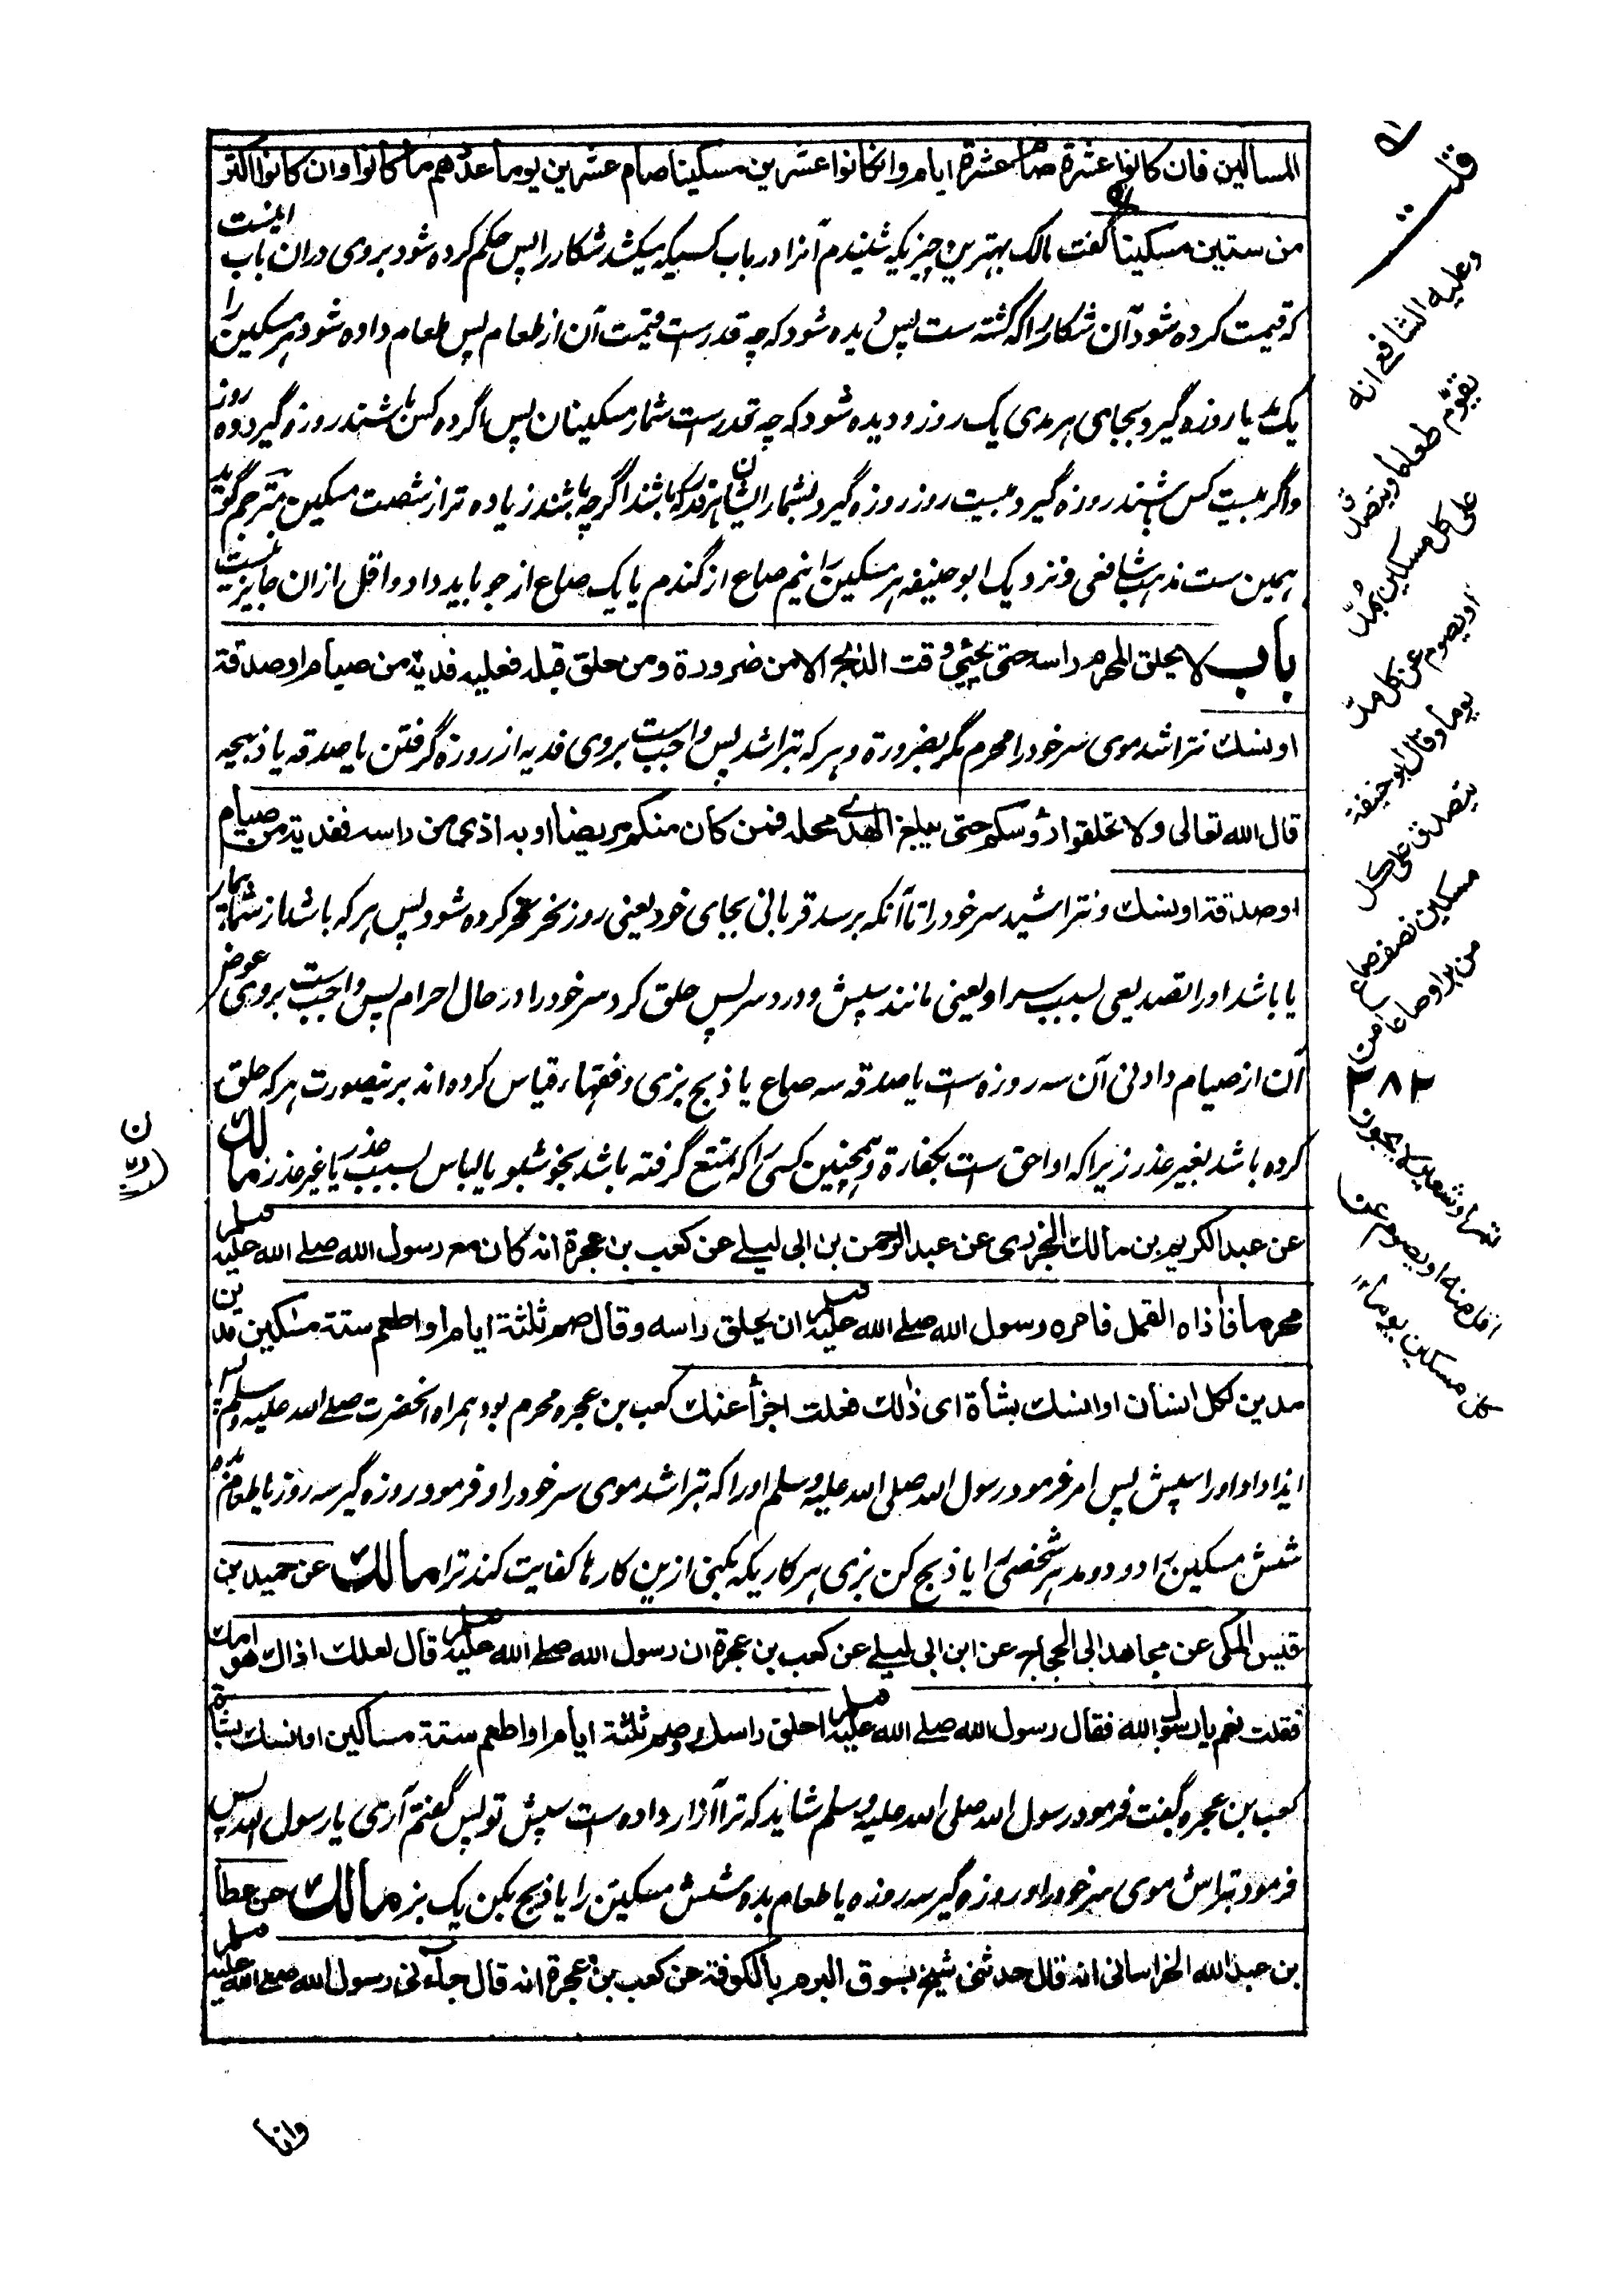 المساكين فان كانوا عشرة صام عشرة ايام وان كانوا عشرين مسكينا صام عشرين يوما عددهم ما كانوا وان كانوا اكثر
من ستين مسكينا گفت مالک بهترین چیزیکه شنیدم آنرا در باب کسیکه بکشد شکار را پس حکم کرده شود بروی دران باب اینست
که قیمت کرده شود آن شکار را که کشته ست پس دیده شود که چه قدرست قیمت آن از طعام پس طعام داده شود هر مسکین را
یک مد یا روزه گیرد بجای هر مدی یک روز و دیده شود که چه قدرست شمار مسکینان پس اگر ده کس باشند روزه گیرد ده روز
واگر بیست کس باشند روزه گیرد بیست روز روزه گیرد بشمار ایشان هر قدر که باشند اگرچه باشند زیاده تر از شصت مسکین مترجم گوید
همین ست مذهب شافعی ونزدیک ابو حنیفه هر مسکین را نیم صاع از گندم یا یک صاع از جو باید داد و اقل ازان جایز نیست
باب لا يحلق المحرم راسه حتى يجيئ وقت الذبح الا من ضرورة ومن حلق قبله فعليه فدية من صيام او صدقة
او نسك نتراشد موی سر خود را محرم مگر بضرورة و هر که بتراشد پس واجب ست بروی فدیه از روزه گرفتن یا صدقه یا ذبیحه
قال الله تعالى ولا تحلقوا رؤسكم حتى يبلغ الهدى محله فمن كان منكم مريضا او به اذى من راسه ففدية من صيام
او صدقة او نسك ونتراشید سر خود را تا آنکه برسد قربانی بجای خود یعنی روز نحر نحر کرده شود پس هر که باشد از شما بیمار
یا باشد او را تصدیعی بسبب سر او یعنی مانند سپش و درد سر پس حلق کرد سر خود را در حال احرام پس واجب ست بروی عوض
آن از صیام و ادنی آن سه روزه ست یا صدقه سه صاع یا ذبح بزی وفقهاء قیاس کرده اند برینصورت هر که حلق
کرده باشد بغیر عذر زیرا که او احق ست بکفارة و همچنین کسی را که تمتع گرفته باشد بخوشبو یا لباس بسبب عذر یا غیر عذر مالك
عن عبد الكريم بن مالك الجزرى عن عبد الرحمن بن ابى ليلى عن كعب بن عجرة انه كان مع رسول الله صلى الله عليه وسلم
محرما فاذاه القمل فامره رسول الله صلى الله عليه وسلم ان يحلق راسه وقال صم ثلثة ايام او اطعم ستة مسكين مدين
مدين لكل انسان او انسك بشاة اى ذلك فعلت اجزأ عنك کعب بن عجره محرم بود همراه آنحضرت صلی الله علیه وسلم پس
ایذا داد او را سپش پس امر فرمود رسول الله صلی الله علیه وسلم او را که بتراشد موی سر خود را و فرمود روزه گیر سه روز یا طعام ده
شش مسکین را دو دو مد هر شخصی را یا ذبح کن بزی هر کاریکه بکنی ازین کارها کفایت کند ترا مالك عن حميد بن
قيس المكى عن مجاهد ابى الحجاج عن ابن ابى ليلى عن كعب بن عجرة ان رسول الله صلى الله عليه وسلم قال لعلك اذاك هوامك
فقلت نعم يا رسول الله فقال رسول الله صلى الله عليه وسلم احلق راسك وصم ثلثة ايام او اطعم ستة مساكين او انسك بشاة
کعب بن عجره گفت فرمود رسول الله صلی الله علیه وسلم شاید که ترا آزار داده ست سپش تو پس گفتم آری یا رسول الله پس
فرمود بتراش موی سر خود را و روزه گیر سه روزه یا طعام بده شش مسکین را یا ذبح بکن یک بز مالك عن عطا
بن عبد الله الخراسانى انه قال حدثنى شيخ بسوق البرم بالكوفة عن كعب بن عجرة انه قال جاءنى رسول الله صلى الله عليه
قلت
وعليه الشافعى انه
يقوم طعاما ويتصدق
على كل مسكين بمد
او يصوم عن كل مد
يوما وقال ابو حنيفة
يتصدق على كل
مسكين نصف صاع
من بر او صاعا
من
۳۸۲
تمر او شعير لا يجوز
اقل منه او يصوم عن
كل مسكين يوما
وانا